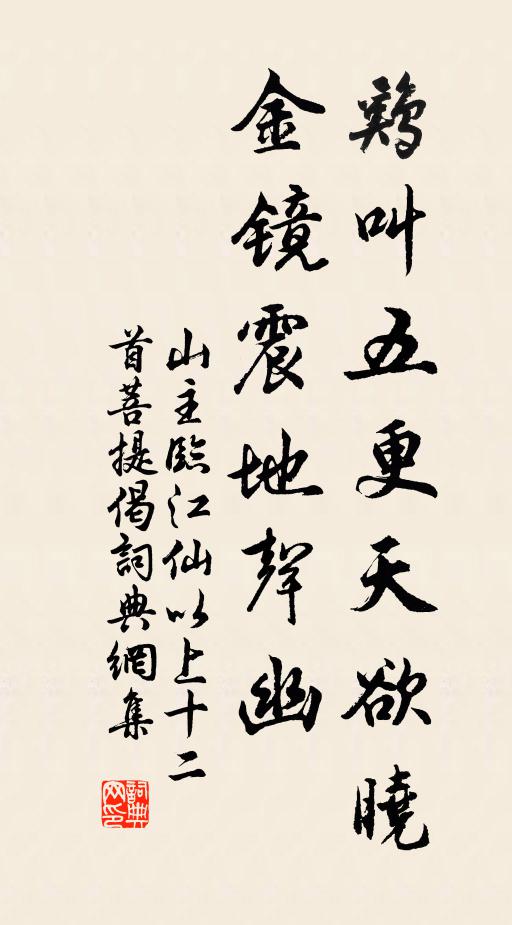 鷄叫五更天欲曉
金鏡震地聲幽
山主臨江仙以上十二
首菩提偈詞典網集
詞典网印